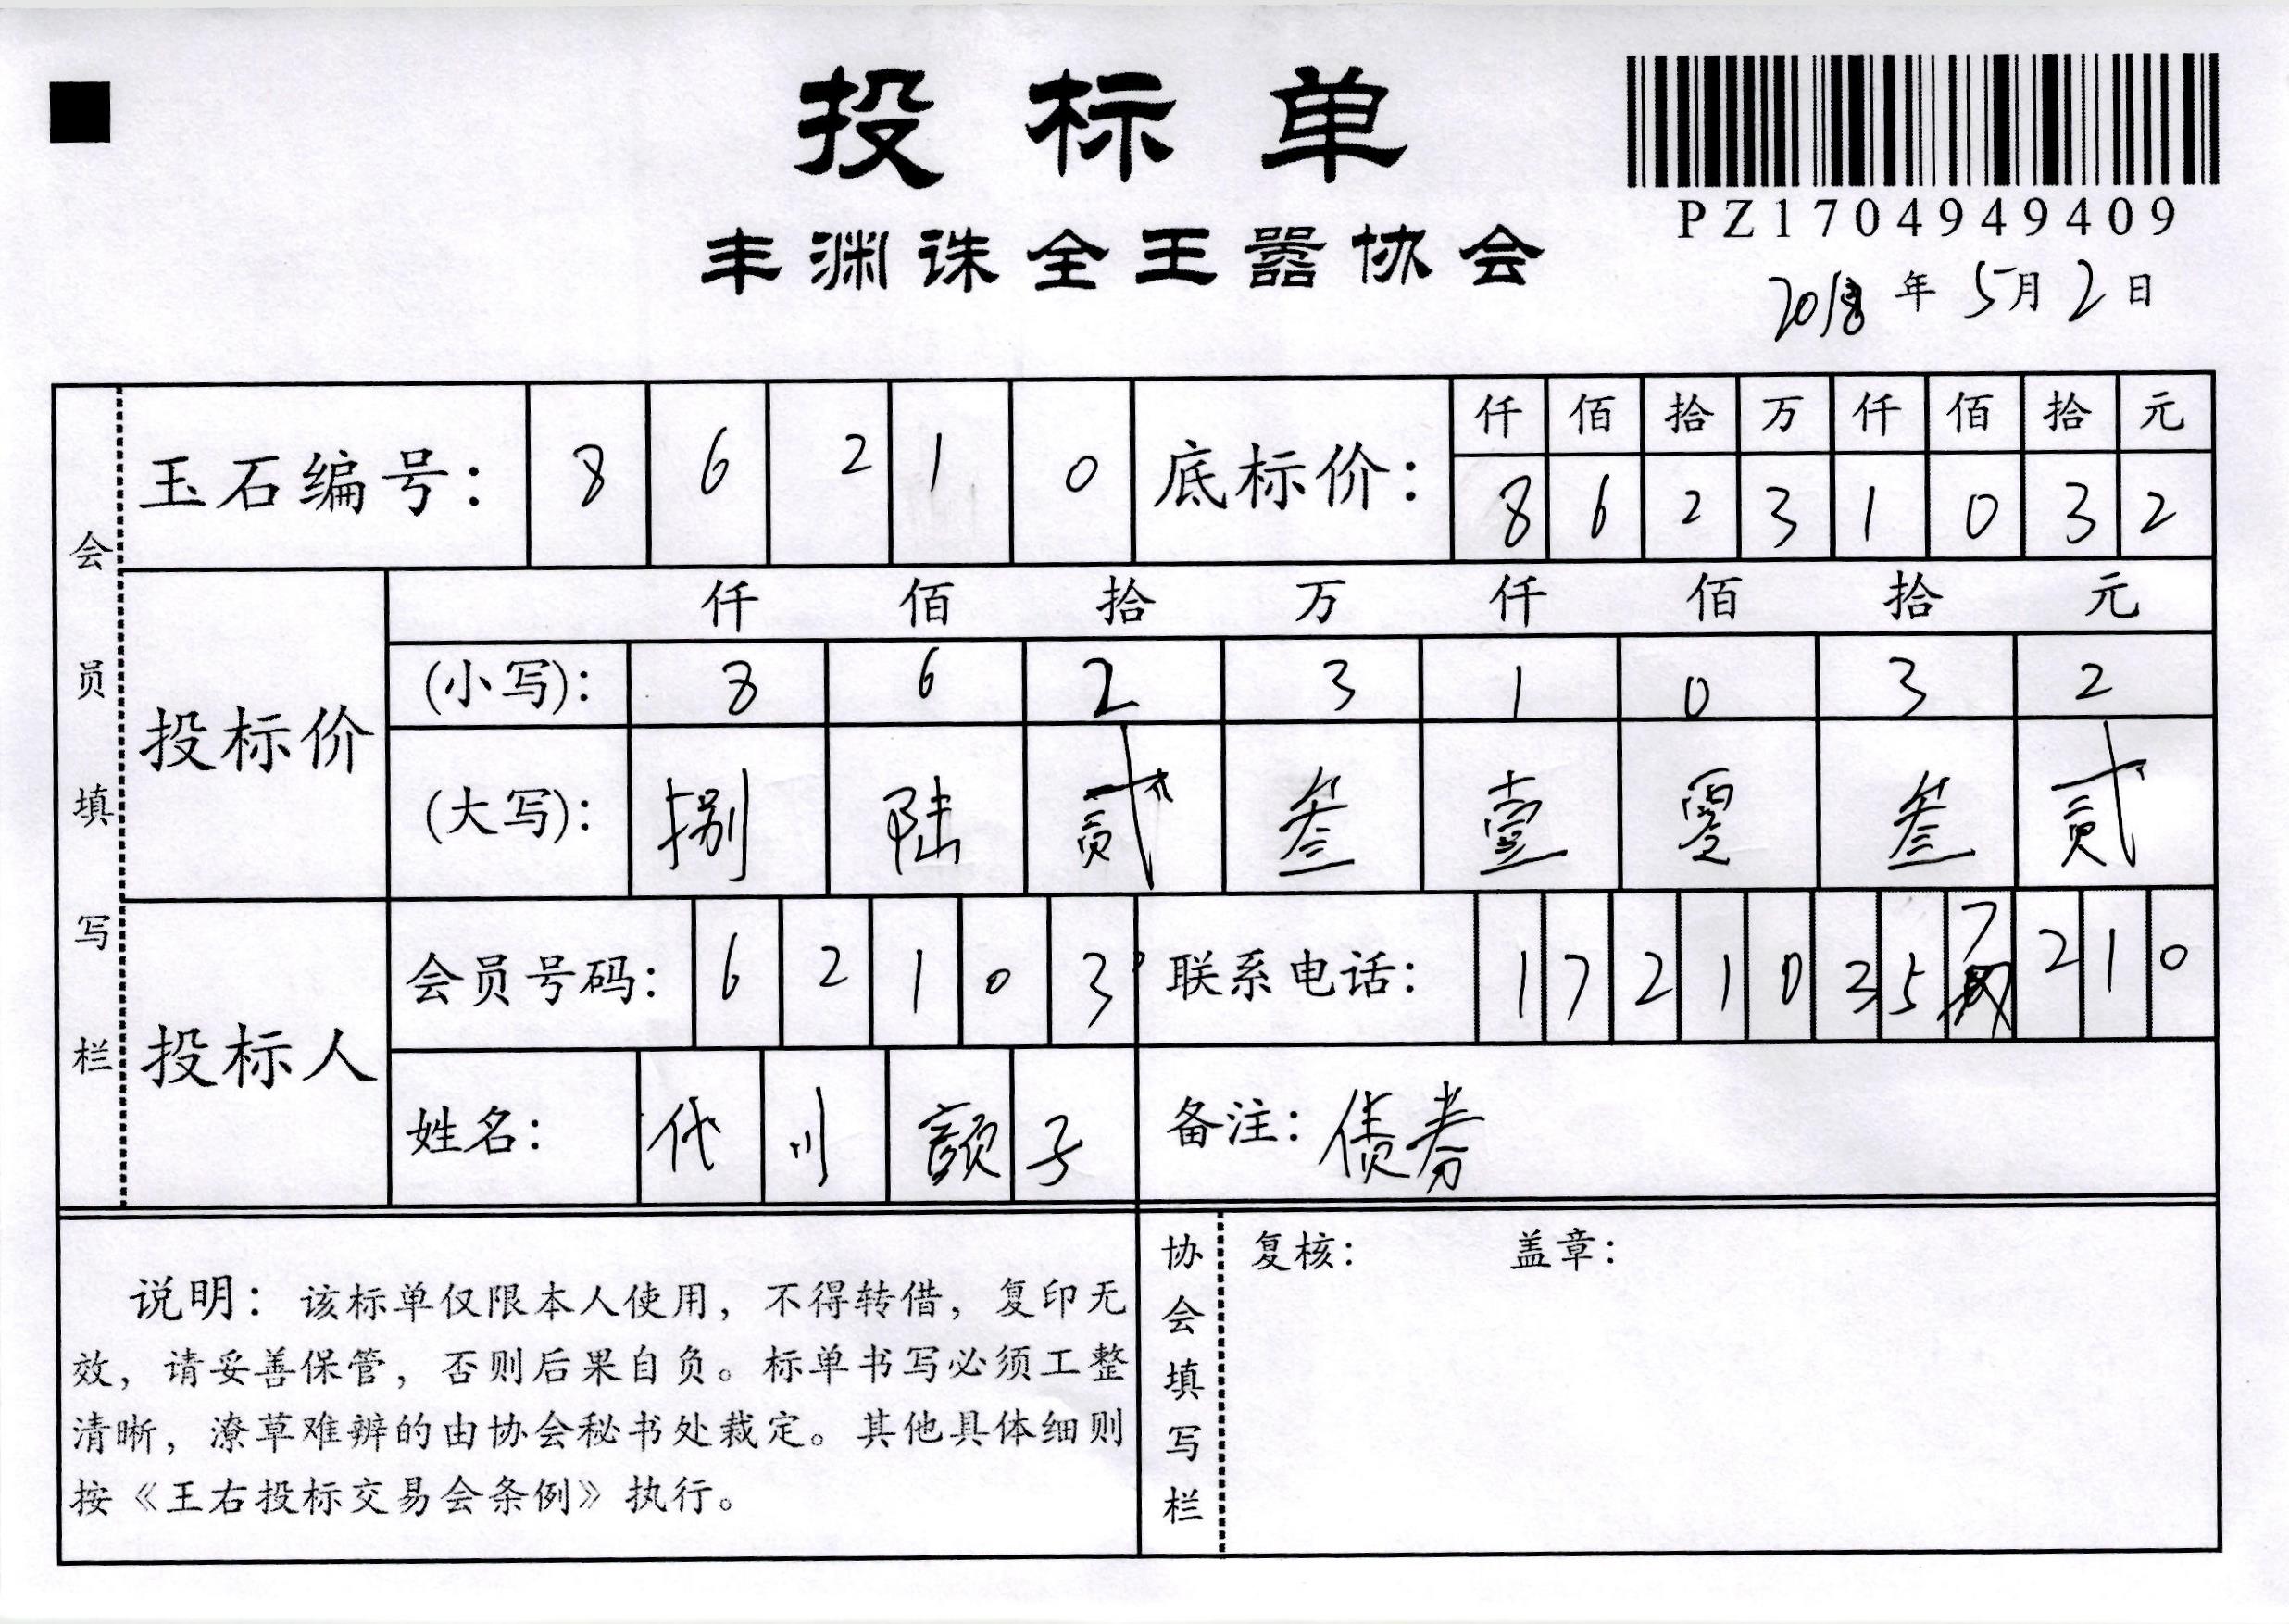 投标单
PZ1704949409
丰渊诛全王嚣协会
2018年5月2日
会员填写栏
玉石编号: 8 6 2 1 0
底标价: 仟 佰 拾 万 仟 佰 拾 元
8 6 2 3 1 0 3 2
投标价
仟 佰 拾 万 仟 佰 拾 元
(小写): 8 6 2 3 1 0 3 2
(大写): 捌 陆 贰 叁 壹 零 叁 贰
投标人
会员号码: 6 2 1 0 3
联系电话: 1 7 2 1 0 3 5 7 2 1 0
姓名: 代 川 颜 子
备注: 债券
说明: 该标单仅限本人使用, 不得转借, 复印无
效, 请妥善保管, 否则后果自负。标单书写必须工整
清晰, 潦草难辨的由协会秘书处裁定。其他具体细则
按《王右投标交易会条例》执行。
协会填写栏
复核: 盖章: